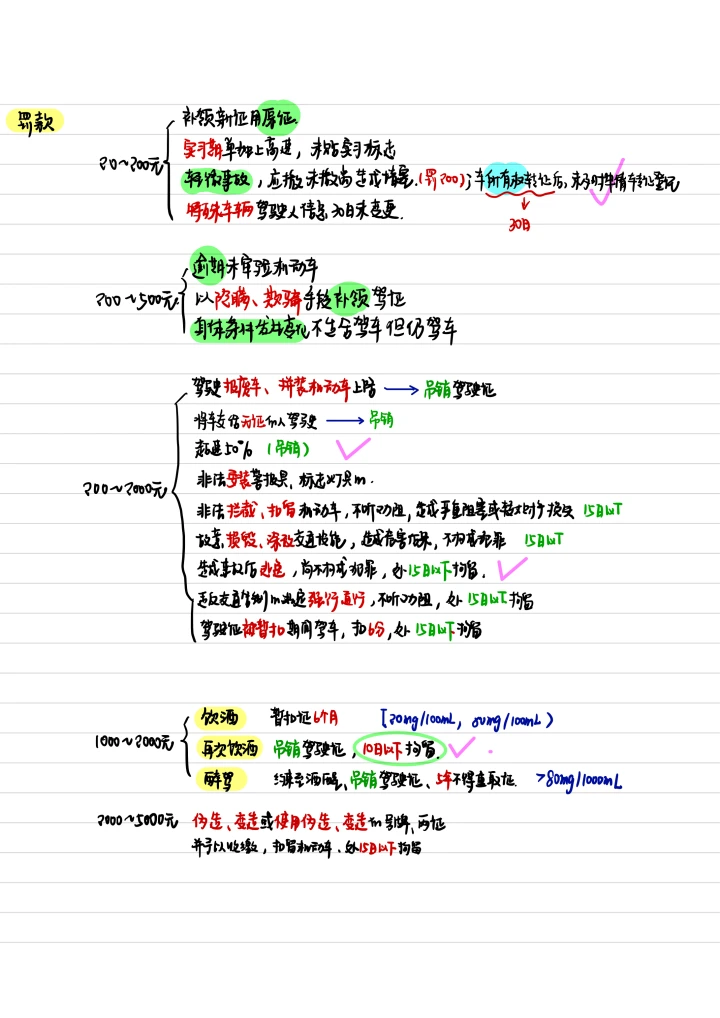 罚款
20~200元
补领新证用原证.
实习期单独上高速，未贴实习标志
轻微事故，应撤未撤向造成堵塞.(罚200)；车所有权转让后，未及时申请转让登记
30日
特殊车辆驾驶人信息30日未变更.
200~500元
逾期未审验机动车
以隐瞒、欺骗手段补领驾证
身体条件发生变化不适合驾车但仍驾车
200~2000元
驾驶报废车、拼装机动车上路 → 吊销驾驶证
将车交给无证的人驾驶 → 吊销
超速50% (吊销)
非法安装警报具、标志灯具的.
非法拦截、扣留机动车，不听劝阻，造成严重阻塞或较大财产损失 15日以下
故意损毁、涂改交通设施，造成危害后果，不构成犯罪 15日以下
造成事故后逃逸，尚不构成犯罪，处15日以下拘留.
违反交通管制的规定强行通行，不听劝阻，处15日以下拘留
驾驶证被暂扣期间驾车，扣6分，处15日以下拘留
1000~2000元
饮酒 暂扣证6个月 [20mg/100mL, 80mg/100mL)
再次饮酒 吊销驾驶证，10日以下拘留.
醉驾 约束至酒醒、吊销驾驶证、5年不得重取证. >80mg/1000mL
2000~5000元 伪造、变造或使用伪造、变造的号牌、两证
并予以收缴，扣留机动车.处15日以下拘留